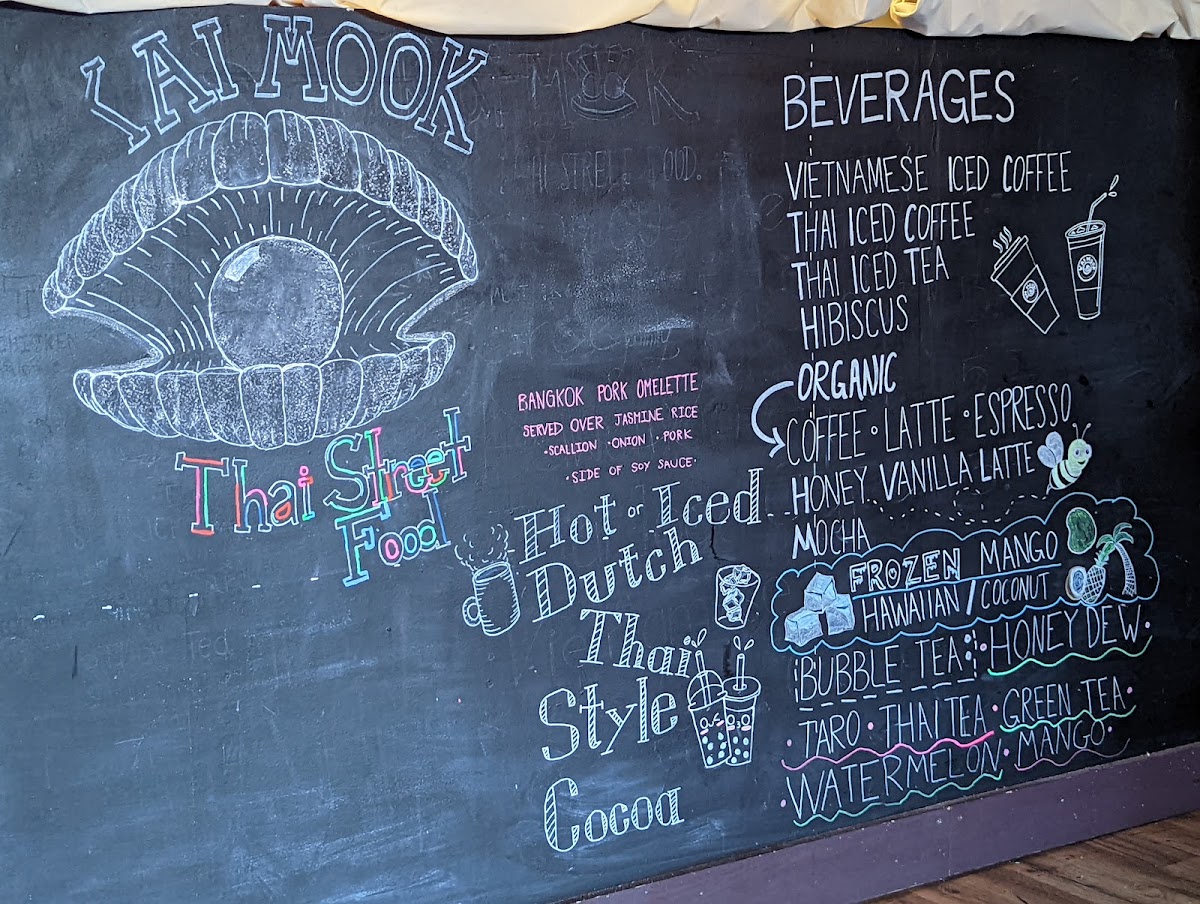 LAI MOOK
Thai Street
Food
THAI STREET FOOD.
BANGKOK PORK OMELETTE
SERVED OVER JASMINE RICE
•SCALLION •ONION •PORK
•SIDE OF SOY SAUCE•
Hot or Iced
Dutch
Thai
Style
Cocoa
BEVERAGES
VIETNAMESE ICED COFFEE
THAI ICED COFFEE
THAI ICED TEA
HIBISCUS
ORGANIC
COFFEE • LATTE • ESPRESSO
HONEY VANILLA LATTE
MOCHA
FROZEN MANGO
HAWAIIAN / COCONUT
BUBBLE TEA • HONEYDEW •
• TARO • THAI TEA • GREEN TEA •
• WATERMELON • MANGO •